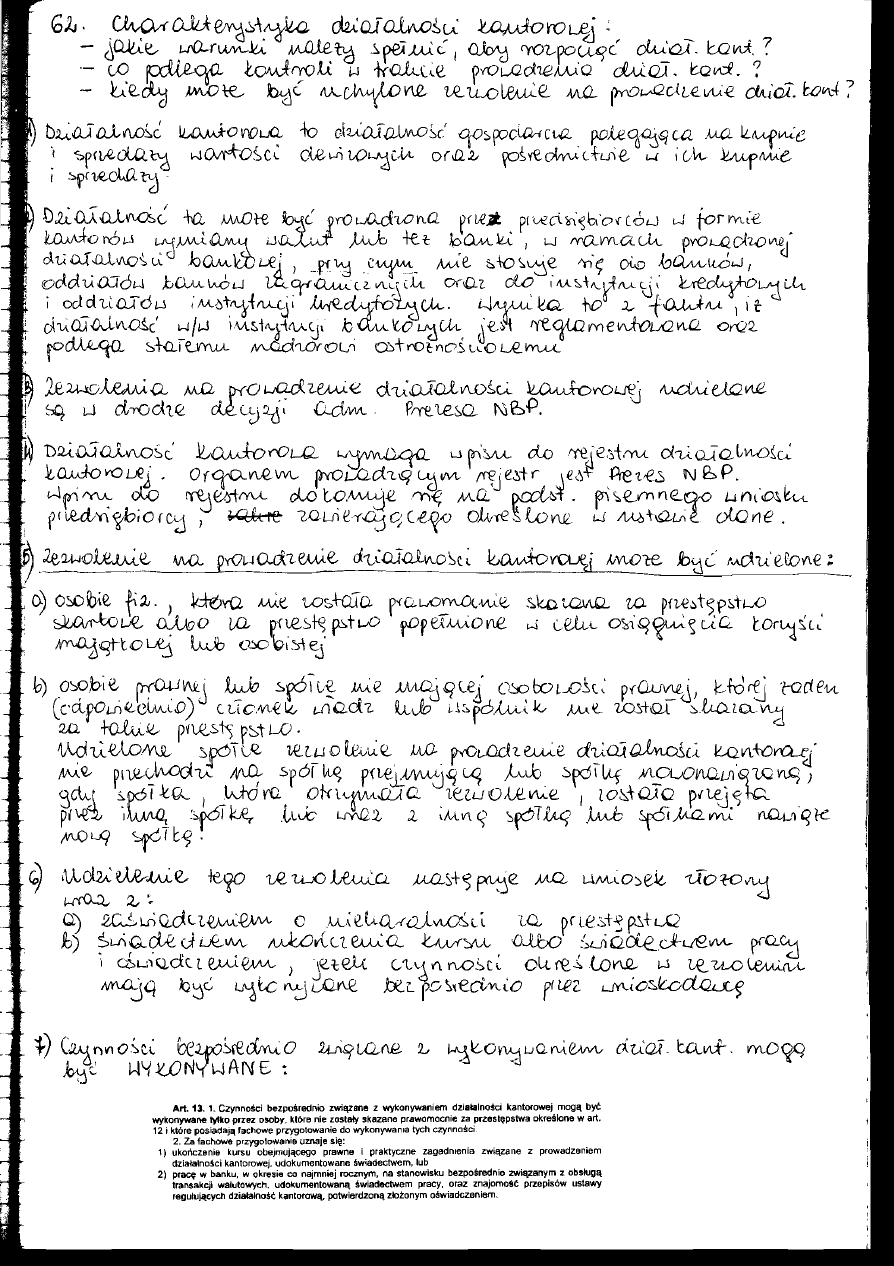 62. Charakterystyka działalności kantorowej:
– jakie warunki należy spełnić, aby rozpocząć dział. kant.?
– co podlega kontroli w trakcie prowadzenia dział. kant.?
– kiedy może być uchylone zezwolenie na prowadzenie dział. kant?
1) Działalność kantorowa to działalność gospodarcza polegająca na kupnie
i sprzedaży wartości dewizowych oraz pośrednictwie w ich kupnie
i sprzedaży.
2) Działalność ta może być prowadzona przez przedsiębiorców w formie
kantorów wymiany walut lub też banki, w ramach prowadzonej
działalności bankowej, przy czym nie stosuje się do banków,
oddziałów banków zagranicznych oraz do instytucji kredytowych
i oddziałów instytucji kredytowych. Wynika to z faktu, iż
działalność w/w instytucji bankowych jest reglamentowana oraz
podlega stałemu nadzorowi ostrożnościowemu
3) Zezwolenia na prowadzenie działalności kantorowej udzielane
są w drodze decyzji adm. Prezesa NBP.
4) Działalność kantorowa wymaga wpisu do rejestru działalności
kantorowej. Organem prowadzącym rejestr jest Prezes NBP.
Wpisu do rejestru dokonuje się na podst. pisemnego wniosku
przedsiębiorcy, zawierającego określone w ustawie dane.
5) Zezwolenie na prowadzenie działalności kantorowej może być udzielone:
a) osobie fiz., która nie została prawomocnie skazana za przestępstwo
skarbowe albo za przestępstwo popełnione w celu osiągnięcia korzyści
majątkowej lub osobistej
b) osobie prawnej lub spółce nie mającej osobowości prawnej, której żaden
(odpowiednio) członek władz lub wspólnik nie został skazany
za takie przestępstwo.
Udzielone spółce zezwolenie na prowadzenie działalności kantorowej
nie przechodzi na spółkę przejmującą lub spółkę nowozawiązaną,
gdy spółka, która otrzymała zezwolenie, została przejęta
przez inną spółkę lub wraz z inną spółką lub spółkami zawiąże
nową spółkę.
6) Udzielenie tego zezwolenia następuje na wniosek złożony
wraz z:
a) zaświadczeniem o niekaralności za przestępstwa
b) świadectwem ukończenia kursu albo świadectwem pracy
i oświadczeniem, jeżeli czynności określone w zezwoleniu
mają być wykonywane bezpośrednio przez wnioskodawcę
7) Czynności bezpośrednio związane z wykonywaniem dział. kant. mogą
być WYKONYWANE:
Art. 13. 1. Czynności bezpośrednio związane z wykonywaniem działalności kantorowej mogą być
wykonywane tylko przez osoby, które nie zostały skazane prawomocnie za przestępstwa określone w art.
12 i które posiadają fachowe przygotowanie do wykonywania tych czynności.
2. Za fachowe przygotowanie uznaje się:
1) ukończenie kursu obejmującego prawne i praktyczne zagadnienia związane z prowadzeniem
działalności kantorowej, udokumentowane świadectwem, lub
2) pracę w banku, w okresie co najmniej rocznym, na stanowisku bezpośrednio związanym z obsługą
transakcji walutowych, udokumentowaną świadectwem pracy, oraz znajomość przepisów ustawy
regulujących działalność kantorową, potwierdzoną złożonym oświadczeniem.